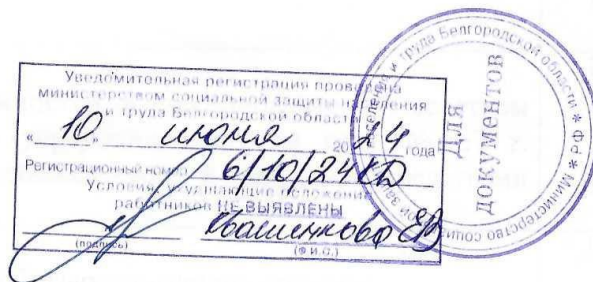 Уведомительная регистрация проведена
министерством социальной защиты населения
и труда Белгородской области
« 10 » июня 2024 года
Регистрационный номер 6/10/24КД
Условия, ухудшающие положение
работников НЕ ВЫЯВЛЕНЫ
Квашенкова ЕВ
(подпись) (Ф.И.О.)
и труда Белгородской области * РФ * Министерство
Для
документов